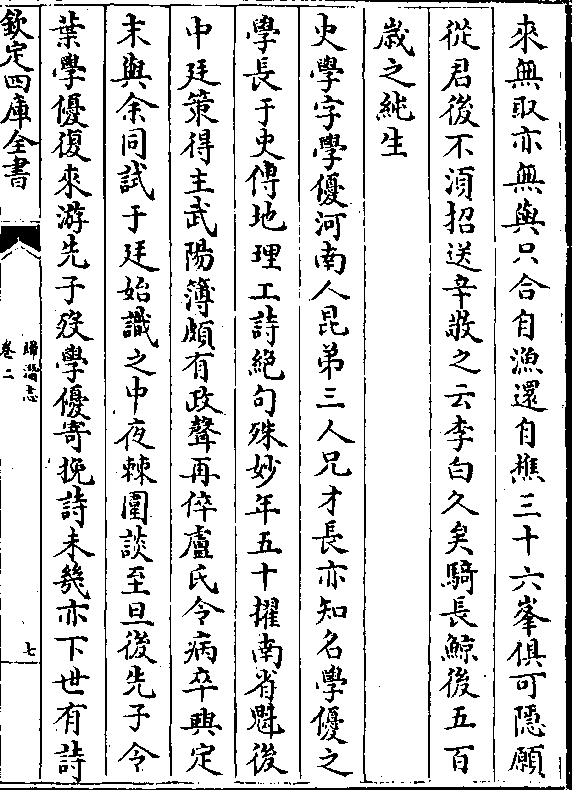 來無取亦無與只合自漁還自樵三十六峯俱可隠願
從君後不湏招送辛敬之云李白久矣騎長鯨後五百
嵗之純生
史學字學優河南人昆弟三人兄才長亦知名學優之
學長于史傳地理工詩絶句殊妙年五十擢南省魁後
中廷策得主武陽簿頗有政聲再倅盧氏令病卒興定
末與余同試于廷始識之中夜棘圍談至旦後先子令
葉學優復來游先子殁學優寄挽詩未幾亦下世有詩
欽定四庫全書
歸潛志
卷二
七